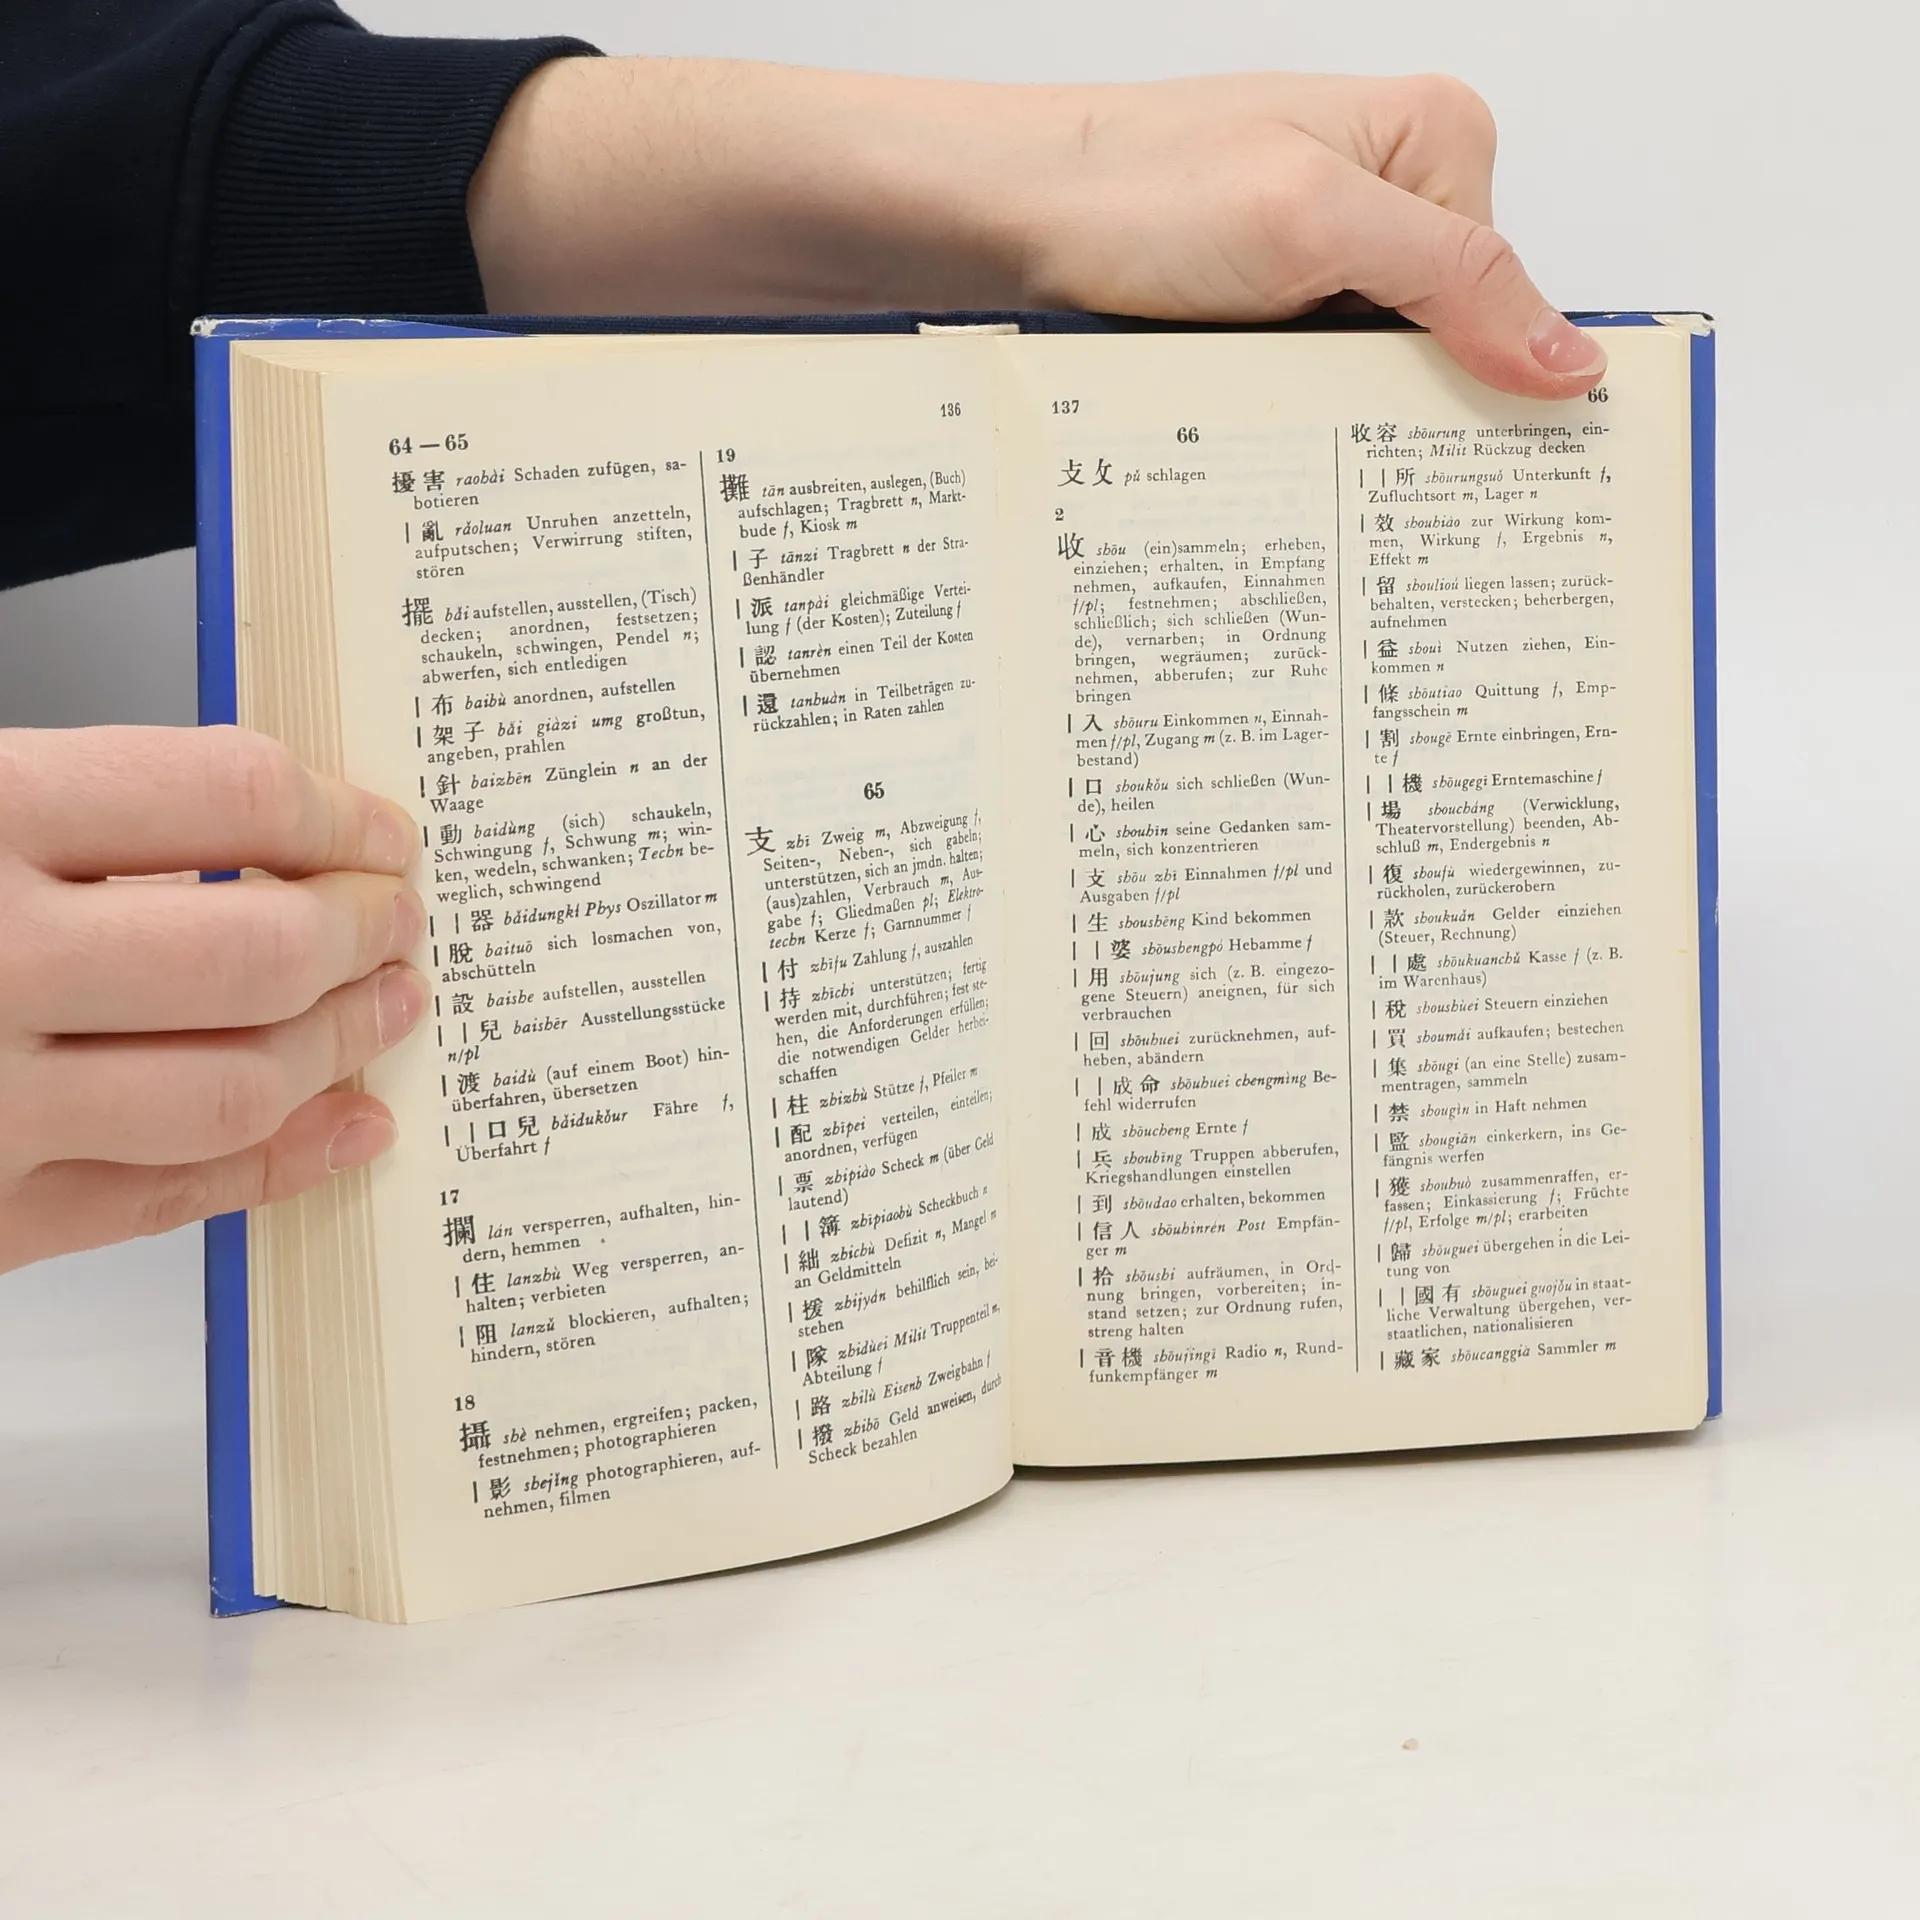 136
64 — 65
擾害 raobài Schaden zufügen, sa-
botieren
| 亂 rǎoluan Unruhen anzetteln,
aufputschen; Verwirrung stiften,
stören
擺 bǎi aufstellen, ausstellen, (Tisch)
decken; anordnen, festsetzen;
schaukeln, schwingen, Pendel n;
abwerfen, sich entledigen
| 布 baibù anordnen, aufstellen
| 架子 bǎi giàzi umg großtun,
angeben, prahlen
| 針 baizhēn Zünglein n an der
Waage
| 動 baidùng (sich) schaukeln,
Schwingung f, Schwung m; win-
ken, wedeln, schwanken; Techn be-
weglich, schwingend
| | 器 bǎidungkì Phys Oszillator m
| 脫 baituō sich losmachen von,
abschütteln
| 設 baishe aufstellen, ausstellen
| | 兒 baishēr Ausstellungsstücke
n/pl
| 渡 baidù (auf einem Boot) hin-
überfahren, übersetzen
| | 口兒 bǎidukǒur Fähre f,
Überfahrt f
17
攔 lán versperren, aufhalten, hin-
dern, hemmen
| 住 lanzhù Weg versperren, an-
halten; verbieten
| 阻 lanzǔ blockieren, aufhalten;
hindern, stören
18
攝 shè nehmen, ergreifen; packen,
festnehmen; photographieren
| 影 shejǐng photographieren, auf-
nehmen, filmen
19
攤 tān ausbreiten, auslegen, (Buch)
aufschlagen; Tragbrett n, Markt-
bude f, Kiosk m
| 子 tānzi Tragbrett n der Stra-
ßenhändler
| 派 tanpài gleichmäßige Vertei-
lung f (der Kosten); Zuteilung f
| 認 tanrèn einen Teil der Kosten
übernehmen
| 還 tanhuàn in Teilbeträgen zu-
rückzahlen; in Raten zahlen
65
支 zhī Zweig m, Abzweigung f,
Seiten-, Neben-, sich gabeln;
unterstützen, sich an jmdn. halten;
(aus)zahlen, Verbrauch m, Aus-
gabe f; Gliedmaßen pl; Elektro-
techn Kerze f; Garnnummer f
| 付 zhīfu Zahlung f, auszahlen
| 持 zhīchi unterstützen; fertig
werden mit, durchführen; fest ste-
hen, die Anforderungen erfüllen;
die notwendigen Gelder herbei-
schaffen
| 柱 zhizhù Stütze f, Pfeiler m
| 配 zhīpei verteilen, einteilen;
anordnen, verfügen
| 票 zhipiào Scheck m (über Geld
lautend)
| | 簿 zhīpiaobù Scheckbuch n
| 絀 zhichù Defizit n, Mangel m
an Geldmitteln
| 援 zhijyán behilflich sein, bei-
stehen
| 隊 zhidùei Milit Truppenteil m,
Abteilung f
| 路 zhilù Eisenb Zweigbahn f
| 撥 zhibō Geld anweisen, durch
Scheck bezahlen
137
66
66
攴攵 pǔ schlagen
2
收 shōu (ein)sammeln; erheben,
einziehen; erhalten, in Empfang
nehmen, aufkaufen, Einnahmen
f/pl; festnehmen; abschließen,
schließlich; sich schließen (Wun-
de), vernarben; in Ordnung
bringen, wegräumen; zurück-
nehmen, abberufen; zur Ruhe
bringen
| 入 shōuru Einkommen n, Einnah-
men f/pl, Zugang m (z. B. im Lager-
bestand)
| 口 shoukǒu sich schließen (Wun-
de), heilen
| 心 shouhīn seine Gedanken sam-
meln, sich konzentrieren
| 支 shōu zhī Einnahmen f/pl und
Ausgaben f/pl
| 生 shoushēng Kind bekommen
| | 婆 shōushengpó Hebamme f
| 用 shōujung sich (z. B. eingezo-
gene Steuern) aneignen, für sich
verbrauchen
| 回 shōuhuei zurücknehmen, auf-
heben, abändern
| | 成命 shōuhuei chengmìng Be-
fehl widerrufen
| 成 shōucheng Ernte f
| 兵 shoubīng Truppen abberufen,
Kriegshandlungen einstellen
| 到 shōudao erhalten, bekommen
| 信人 shōuhinrén Post Empfän-
ger m
| 拾 shōushi aufräumen, in Ord-
nung bringen, vorbereiten; in-
stand setzen; zur Ordnung rufen,
streng halten
| 音機 shōujīngi Radio n, Rund-
funkempfänger m
收容 shōurung unterbringen, ein-
richten; Milit Rückzug decken
| | 所 shōurungsuǒ Unterkunft f,
Zufluchtsort m, Lager n
| 效 shouhiào zur Wirkung kom-
men, Wirkung f, Ergebnis n,
Effekt m
| 留 shoulioú liegen lassen; zurück-
behalten, verstecken; beherbergen,
aufnehmen
| 益 shouì Nutzen ziehen, Ein-
kommen n
| 條 shōutiao Quittung f, Emp-
fangsschein m
| 割 shougē Ernte einbringen, Ern-
te f
| | 機 shōugegi Erntemaschine f
| 場 shoucháng (Verwicklung,
Theatervorstellung) beenden, Ab-
schluß m, Endergebnis n
| 復 shoufù wiedergewinnen, zu-
rückholen, zurückerobern
| 款 shoukuǎn Gelder einziehen
(Steuer, Rechnung)
| | 處 shōukuanchǔ Kasse f (z. B.
im Warenhaus)
| 稅 shoushùei Steuern einziehen
| 買 shoumǎi aufkaufen; bestechen
| 集 shōugi (an eine Stelle) zusam-
mentragen, sammeln
| 禁 shougìn in Haft nehmen
| 監 shougiān einkerkern, ins Ge-
fängnis werfen
| 獲 shouhuò zusammenraffen, er-
fassen; Einkassierung f; Früchte
f/pl, Erfolge m/pl; erarbeiten
| 歸 shōuguei übergehen in die Lei-
tung von
| | 國有 shōuguei guojǒu in staat-
liche Verwaltung übergehen, ver-
staatlichen, nationalisieren
| 藏家 shōucanggià Sammler m